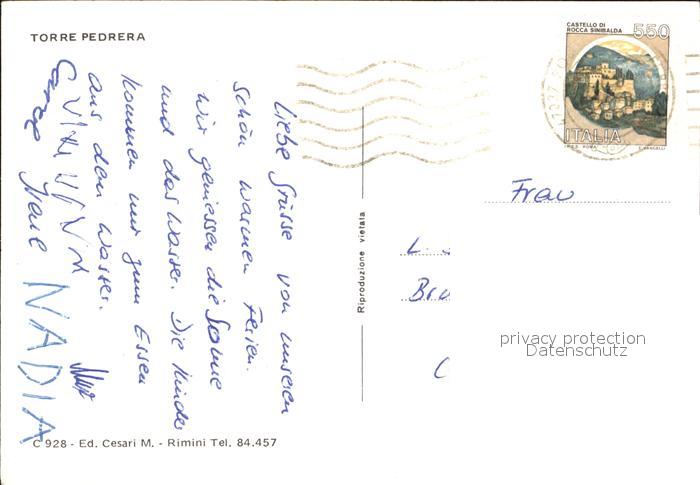 TORRE PEDRERA
CASTELLO DI
ROCCA SINIBALDA
550
ITALIA
Liebe Grüsse von unseren
schön warmen Ferien.
Wir geniessen die Sonne
und das Wasser. Die Kinder
kommen nur zum Essen
aus dem Wasser.
NADIA
Riproduzione vietata
Frau
privacy protection
Datenschutz
C 928 - Ed. Cesari M. - Rimini Tel. 84.457